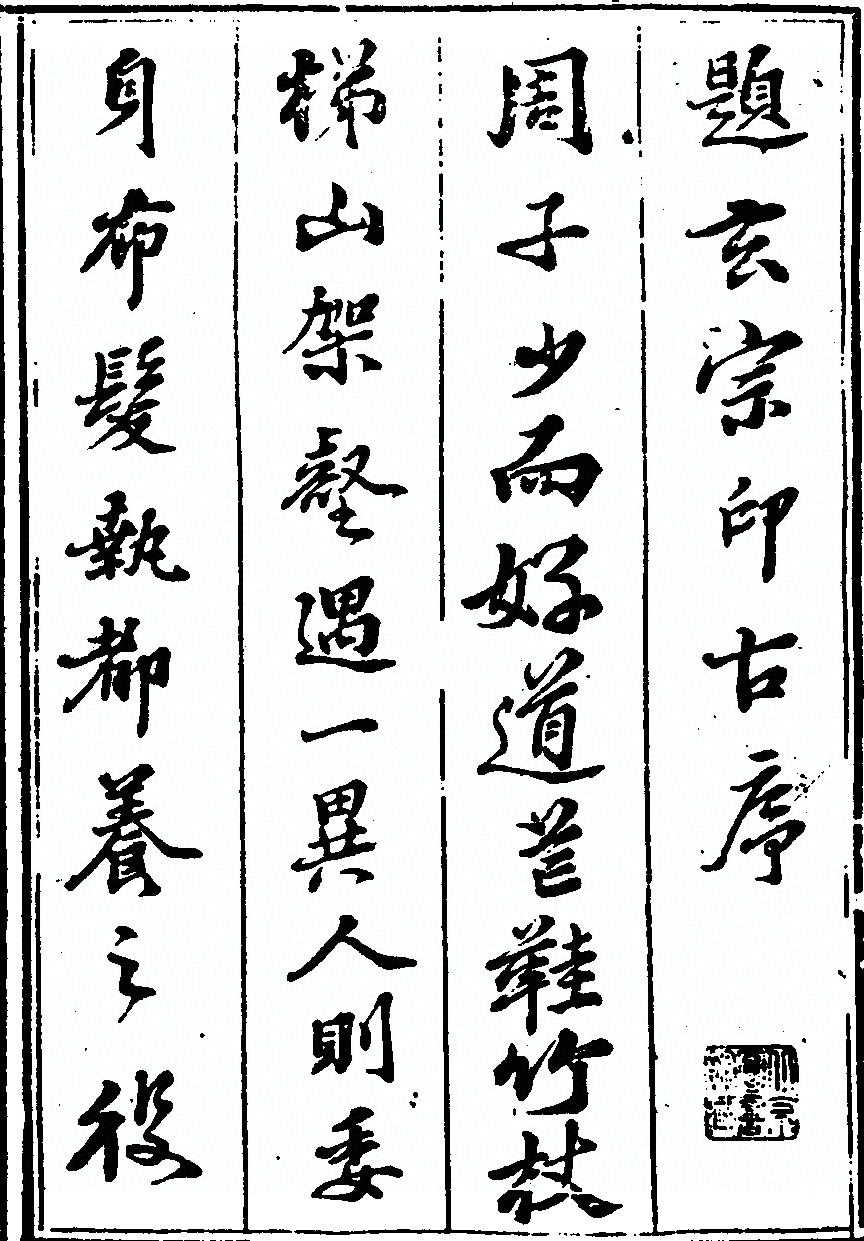 題玄宗印古序
周子少而好道芒鞋竹杖
梯山架壑遇一異人則委
身布髮執都養之役